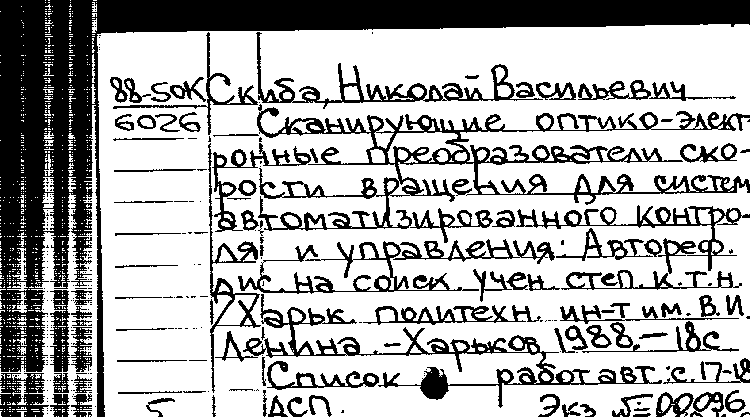 88-50К Скиба, Николай Васильевич
6026 Сканирующие оптико-элект-
ронные преобразователи ско-
рости вращения для систем
автоматизированного контро-
ля и управления: Автореф.
дис. на соиск. учен. степ. к.т.н.
/Харьк. политехн. ин-т им. В.И.
Ленина. - Харьков, 1988. - 18с
Список работ авт.: с. 17-18
5 ДСП. Экз. № 00096